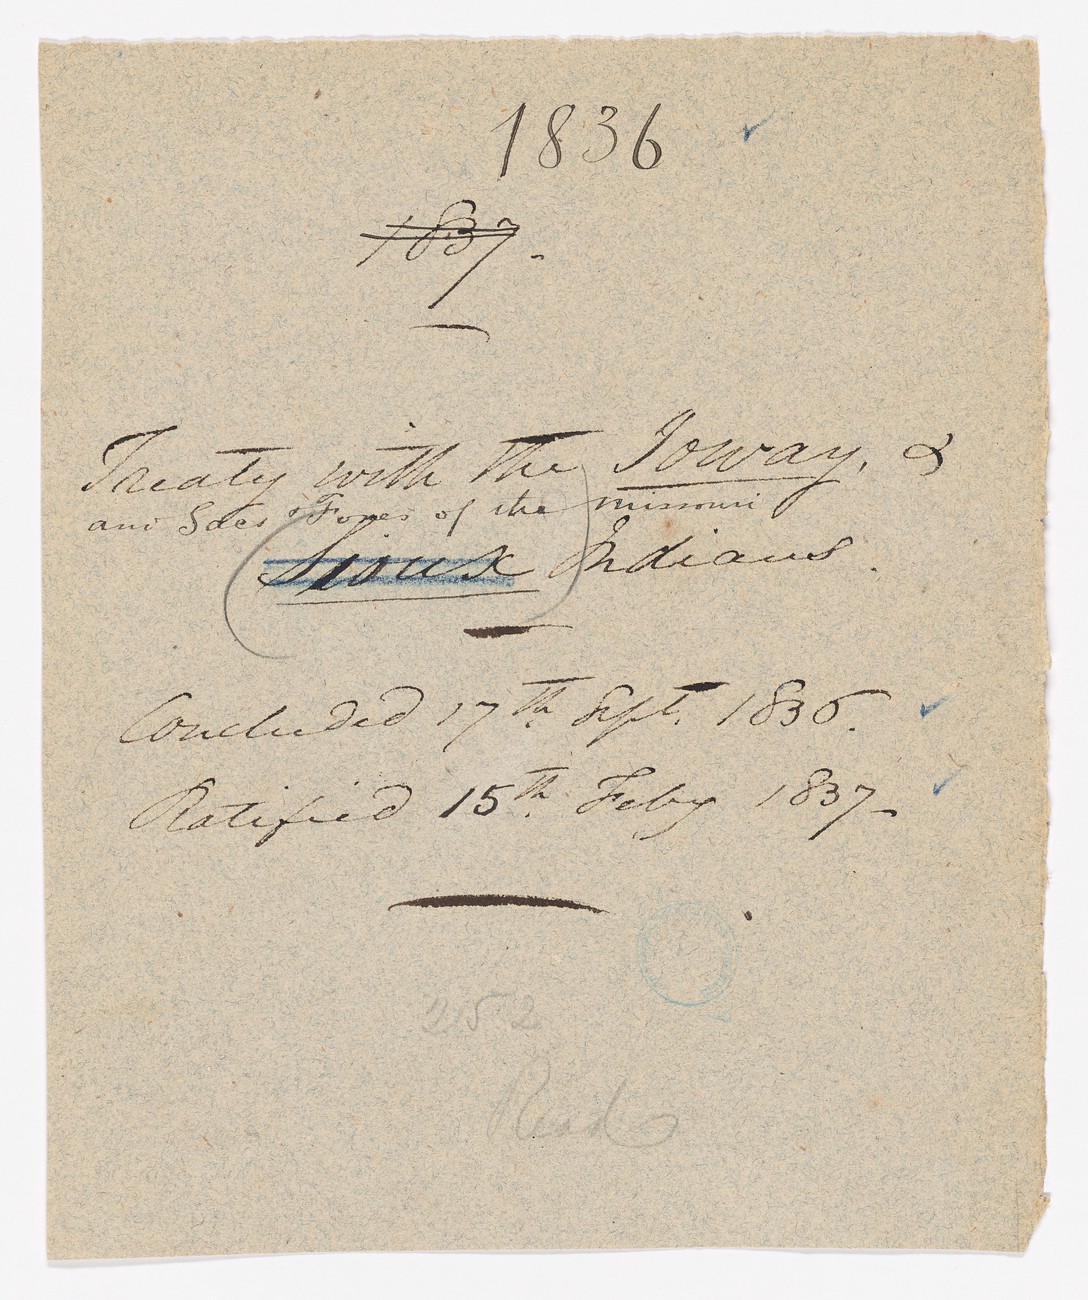 1836
1837.
Treaty with the Ioway, &
and Sacs & Foxes of the missouri
Sioux Indians.
Concluded 17th Sept. 1836.
Ratified 15th Feby 1837
252
Read